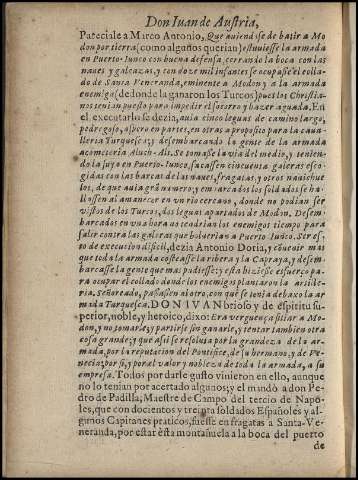 Don Iuan de Austria,
Pareciale a Marco Antonio, Que auiendose de batir a Mo
don por tierra (como algunos querian) estuuiesse la armada
en Puerto-Iunco con buena defensa, cerrando la boca con las
naues y galeazas, y con doze mil infantes se ocupasse el colla-
do de Santa Veneranda, eminente a Modon y a la armada
enemiga (de donde la ganaron los Turcos) pues los Christia-
nos tenian puesto para impedir el socorro y hazer aguada. En
el executarlo se dezia, auia cinco leguas de camino largo,
pedregoso, aspero en partes, en otras a proposito para la caua-
lleria Turquesca; y desembarcando la gente de la armada
acometeria Aluch-Ali. Se tomasse la via del medio, y tenien-
do la suya en Puerto-Iunco, sacassen cincuenta galeras esco-
gidas con las barcas de las naues, fragatas, y otros nauichue-
los, de que auia gra numero; y embarcados los soldados se ha-
llassen al amanecer en un rio cercano, donde no podian ser
vistos de los Turcos, dos leguas apartados de Modon. Desem-
barcados en una hora no tendrian los enemigos tiempo para
salir contra las galeras que boluerian a Puerto Iunco. Ser es-
to de execucion dificil, dezia Antonio Doria, y conuenir mas
que toda la armada costeasse la ribera y la Capraya, y desem-
barcasse la gente que mas pudiesse; y esta hiziesse esfuerço pa-
ra ocupar el collado donde los enemigos plantaron la artille-
ria. Señoreado, passassen a la otra, con que se tenia debaxo la ar
mada Turquesca. DON IVAN brioso y de espiritu su-
perior, noble, y heroico, dixo: Era verguença sitiar a Mo-
don, y no tomarle; y partirse sin ganarle, y tentar tambien otra
cosa grande; y que assi se resoluia por la grandeza de la ar-
mada, por la reputacion del Pontifice, de su hermano, y de Ve-
necia; por si, y por el valor y nobleza de toda la armada, a su
empresa. Todos por darle gusto vinieron en ello, aunque
no lo tenian por acertado algunos; y el mandò a don Pe-
dro de Padilla, Maestre de Campo del tercio de Napo-
les, que con docientos y treinta soldados Españoles y al-
gunos Capitanes praticos, fuesse en fragatas a Santa-Ve-
neranda, por estar esta montañuela a la boca del puerto
de